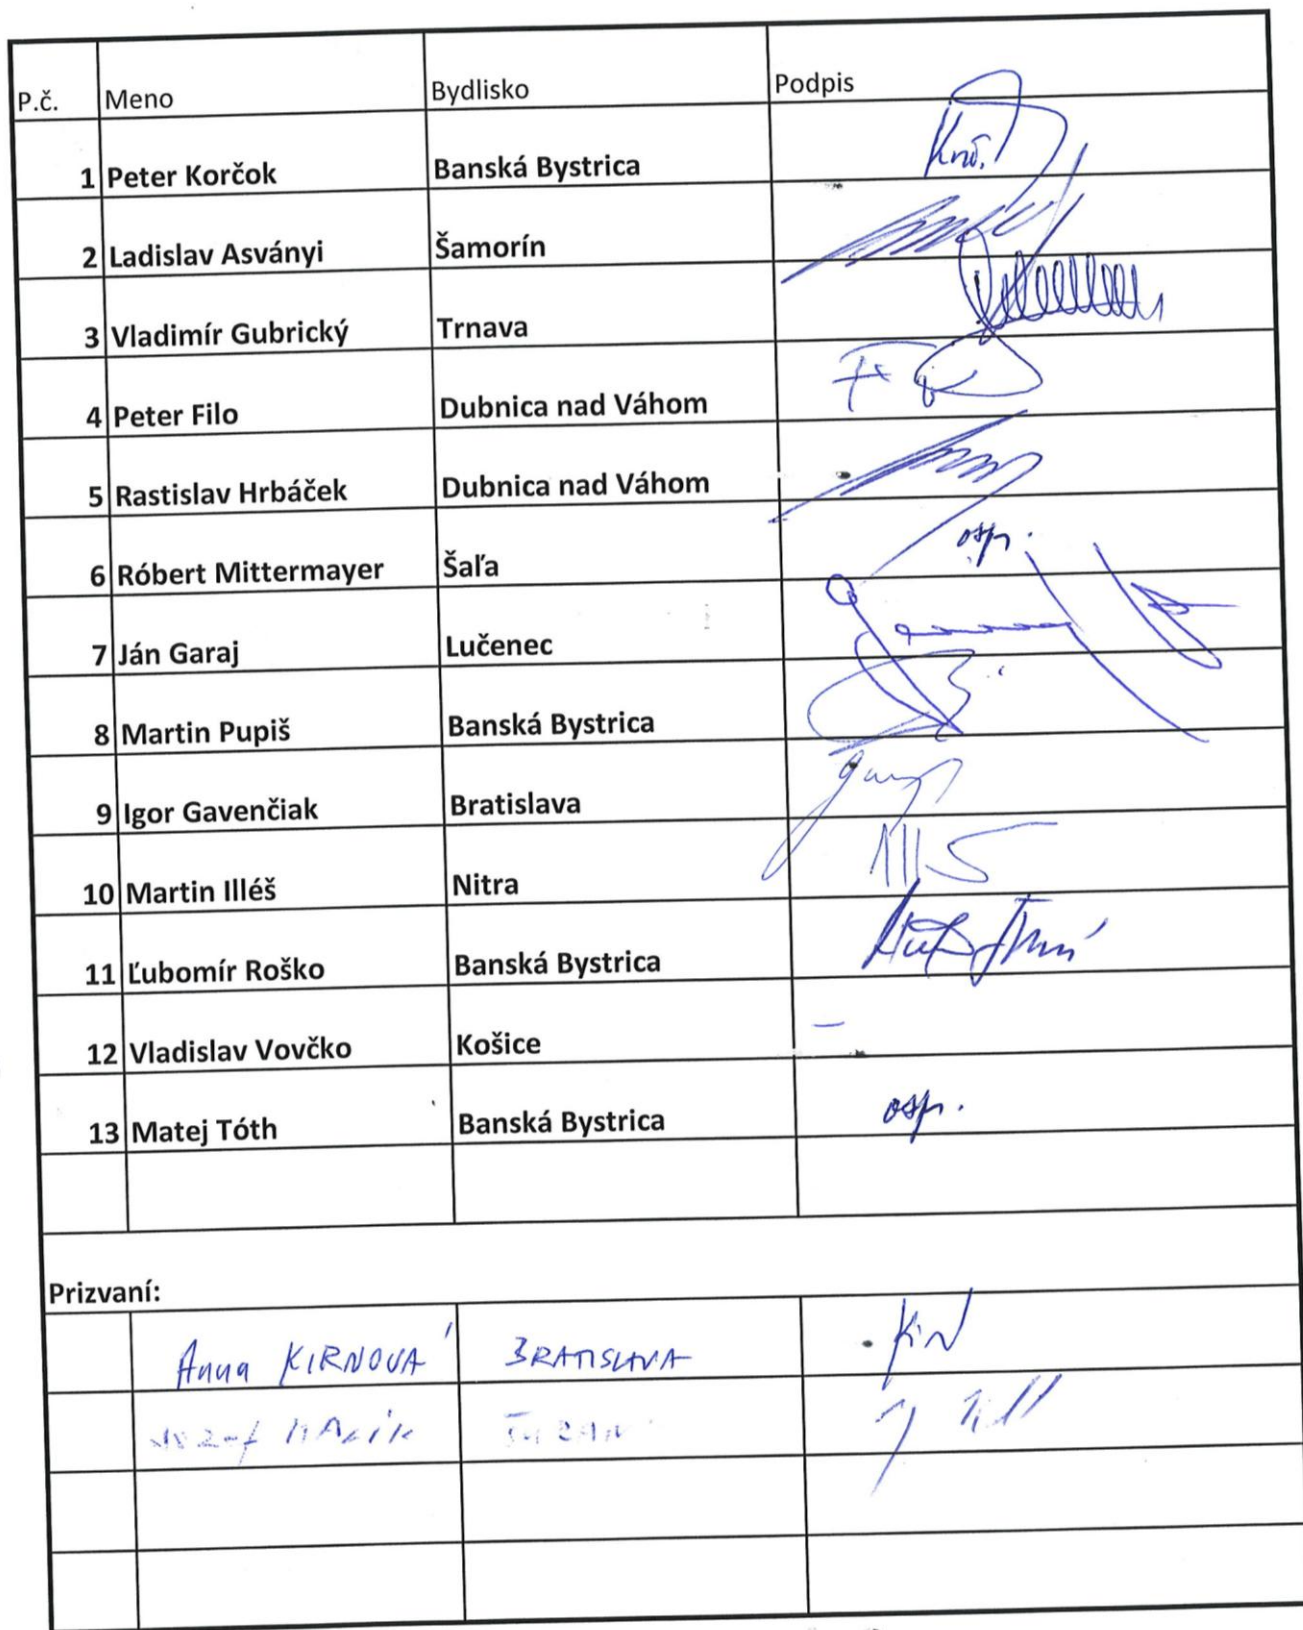 P.č. Meno Bydlisko Podpis
1 Peter Korčok Banská Bystrica
2 Ladislav Asványi Šamorín
3 Vladimír Gubrický Trnava
4 Peter Filo Dubnica nad Váhom
5 Rastislav Hrbáček Dubnica nad Váhom
6 Róbert Mittermayer Šaľa osp.
7 Ján Garaj Lučenec
8 Martin Pupiš Banská Bystrica
9 Igor Gavenčiak Bratislava
10 Martin Illéš Nitra
11 Ľubomír Roško Banská Bystrica
12 Vladislav Vovčko Košice –
13 Matej Tóth Banská Bystrica osp.
Prizvaní:
Anna KIRNOVÁ BRATISLAVA